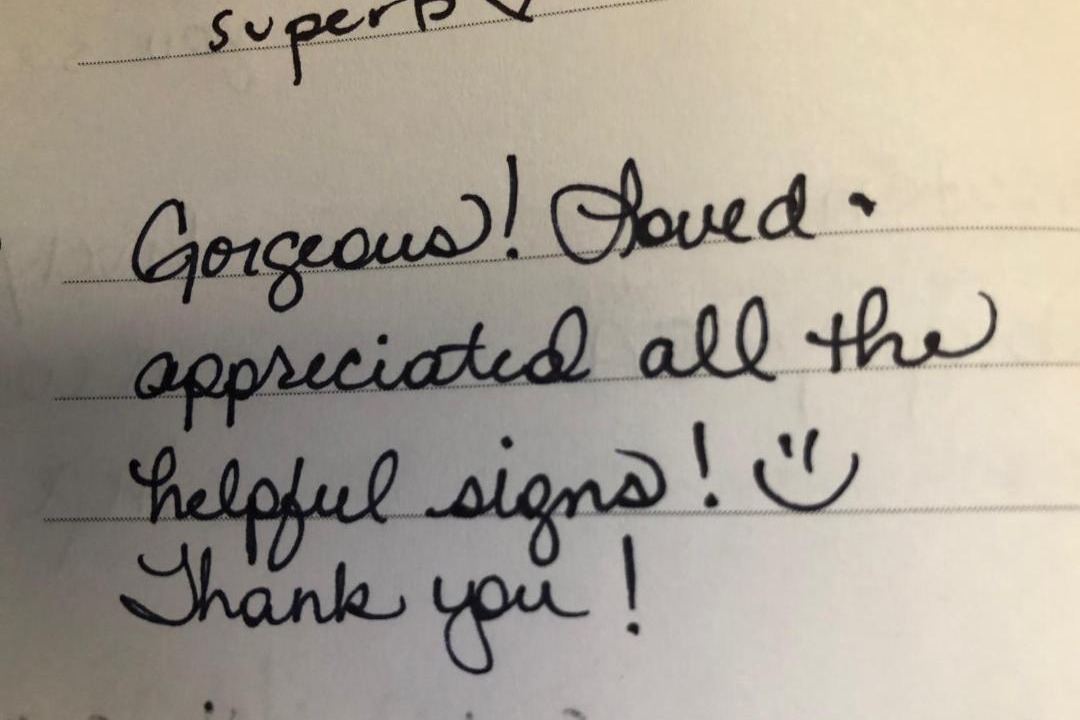 superb
Gorgeous! Loved •
appreciated all the
helpful signs! :)
Thank you!